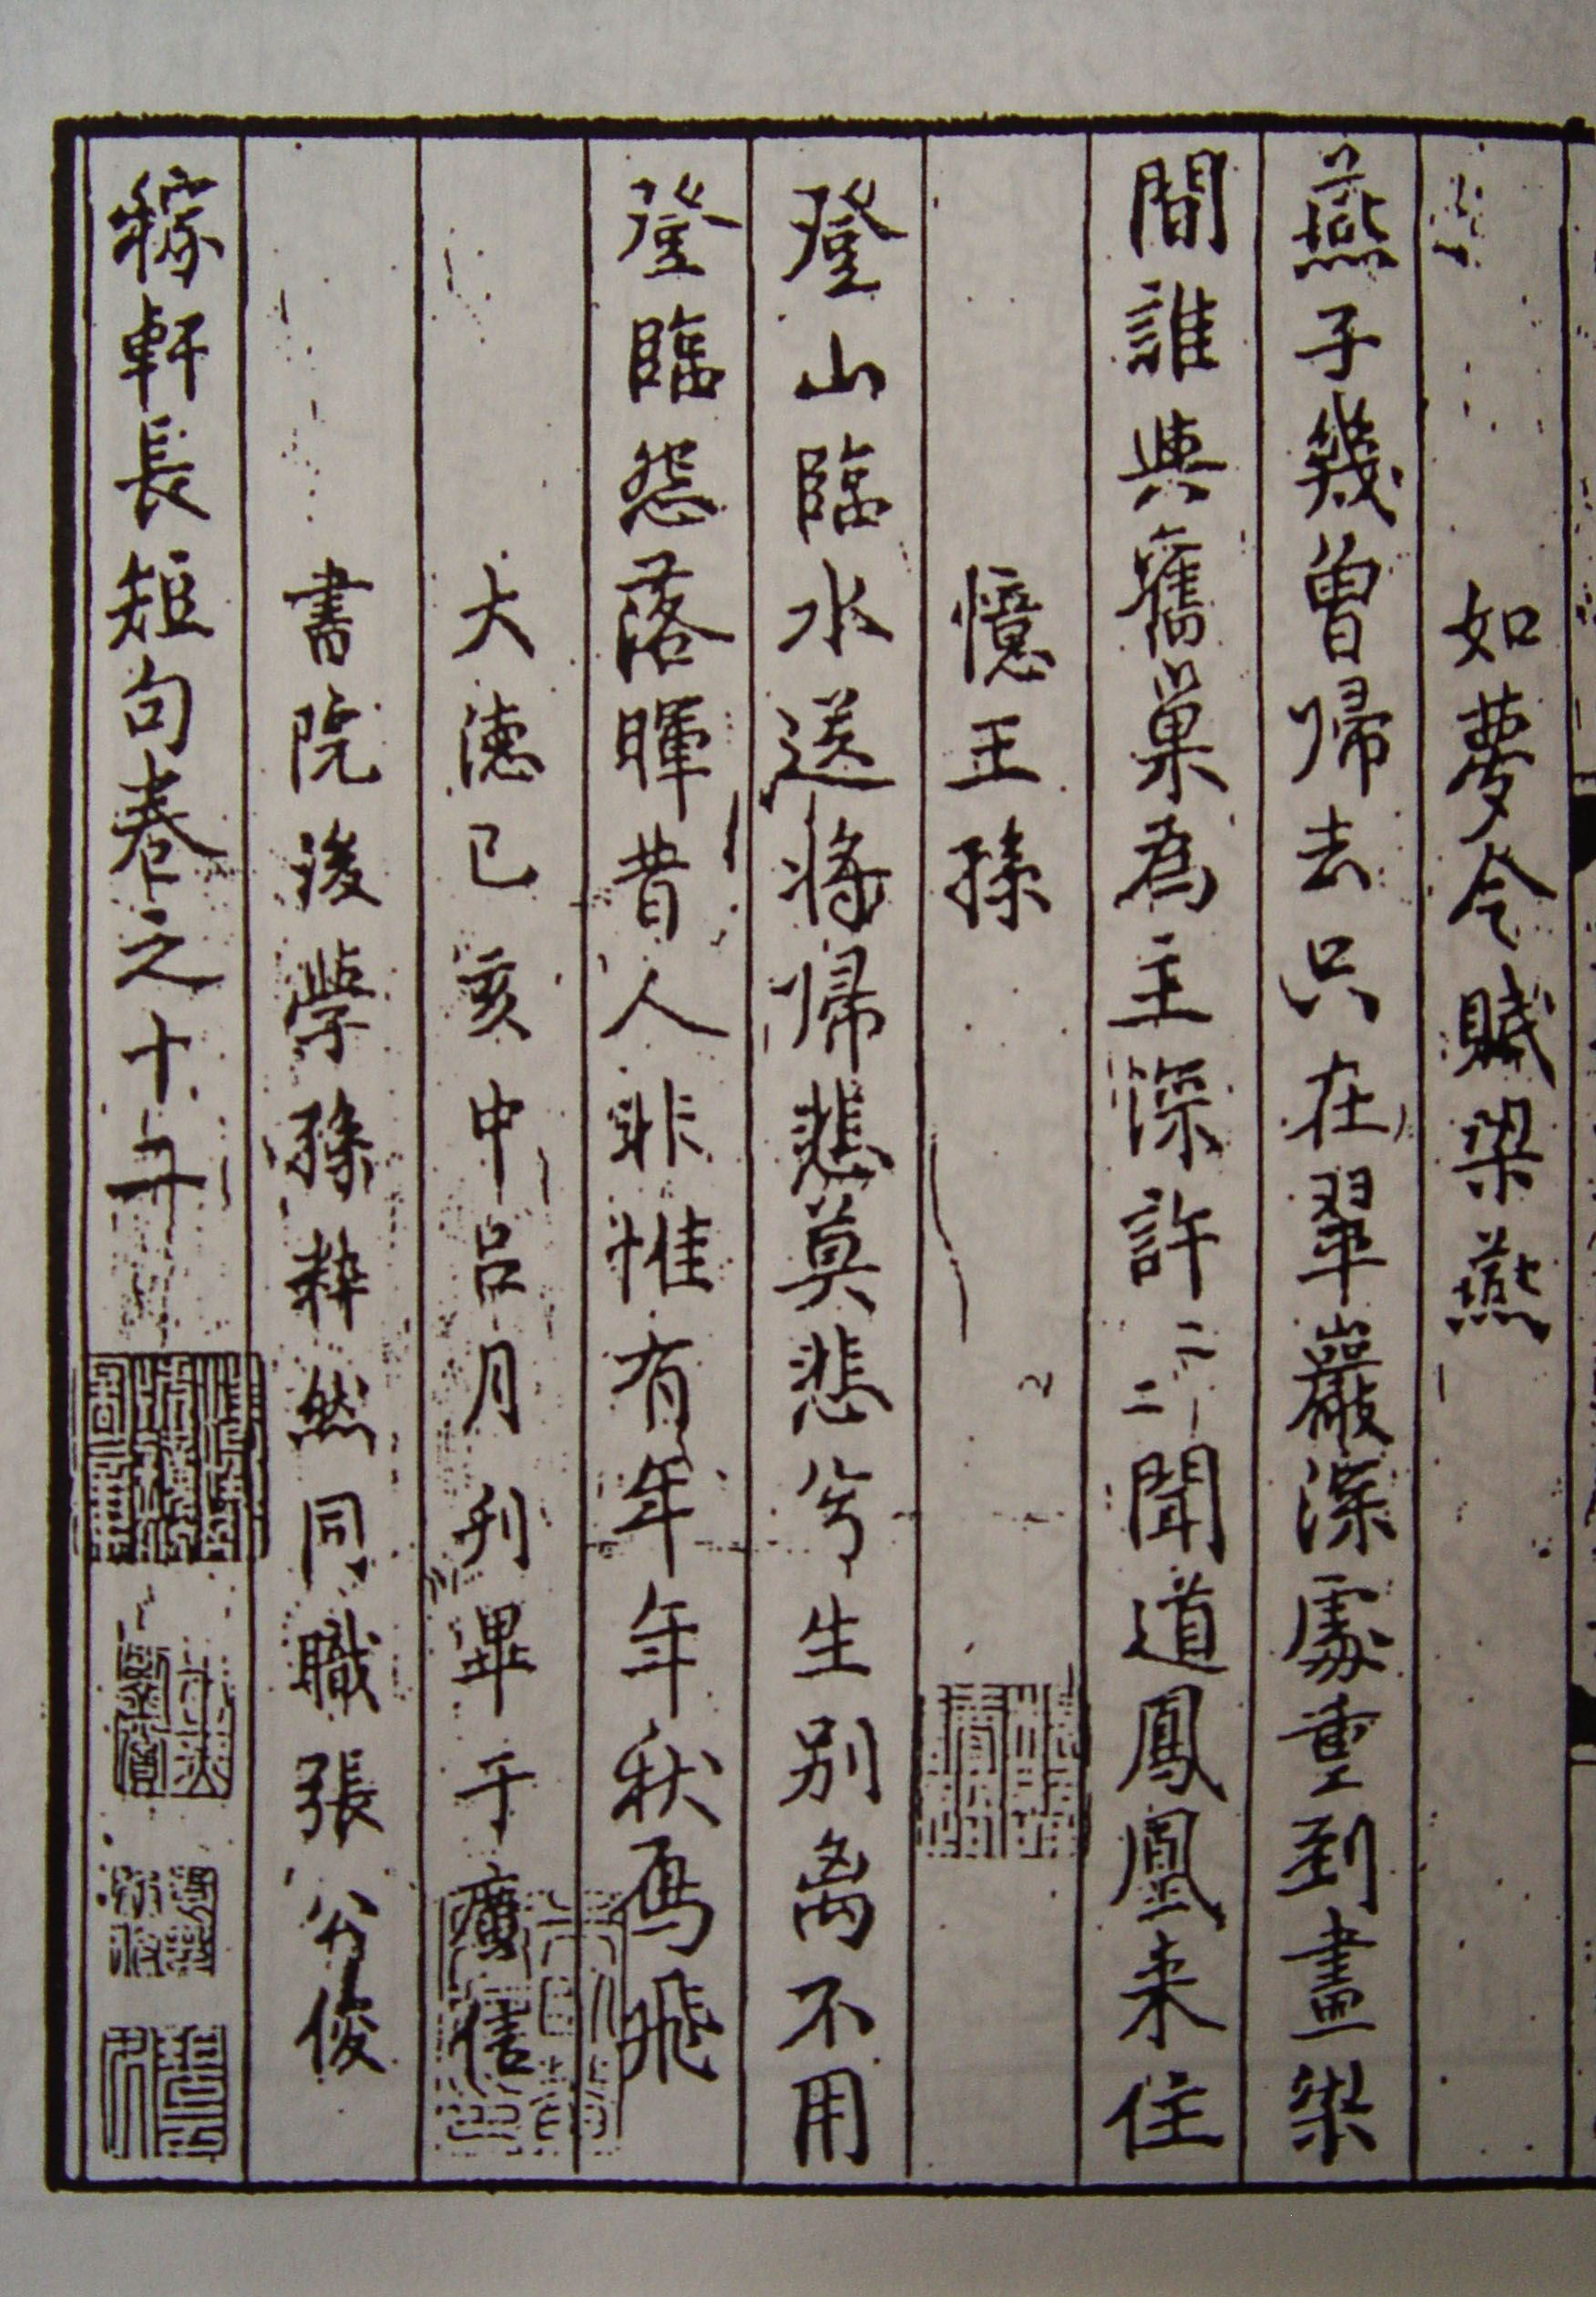 如夢令賦梁燕
燕子幾曾歸去只在翠巖深處重到畫梁
間誰與舊巢為主深許二二聞道鳳凰来住
憶王孫
登山臨水送將歸悲莫悲兮生別离不用
登臨怨落暉昔人非惟有年年秋鴈飛
大德己亥中吕月刋畢于廣信
書院後學孫粹然同職張公俊
稼軒長短句卷之十二